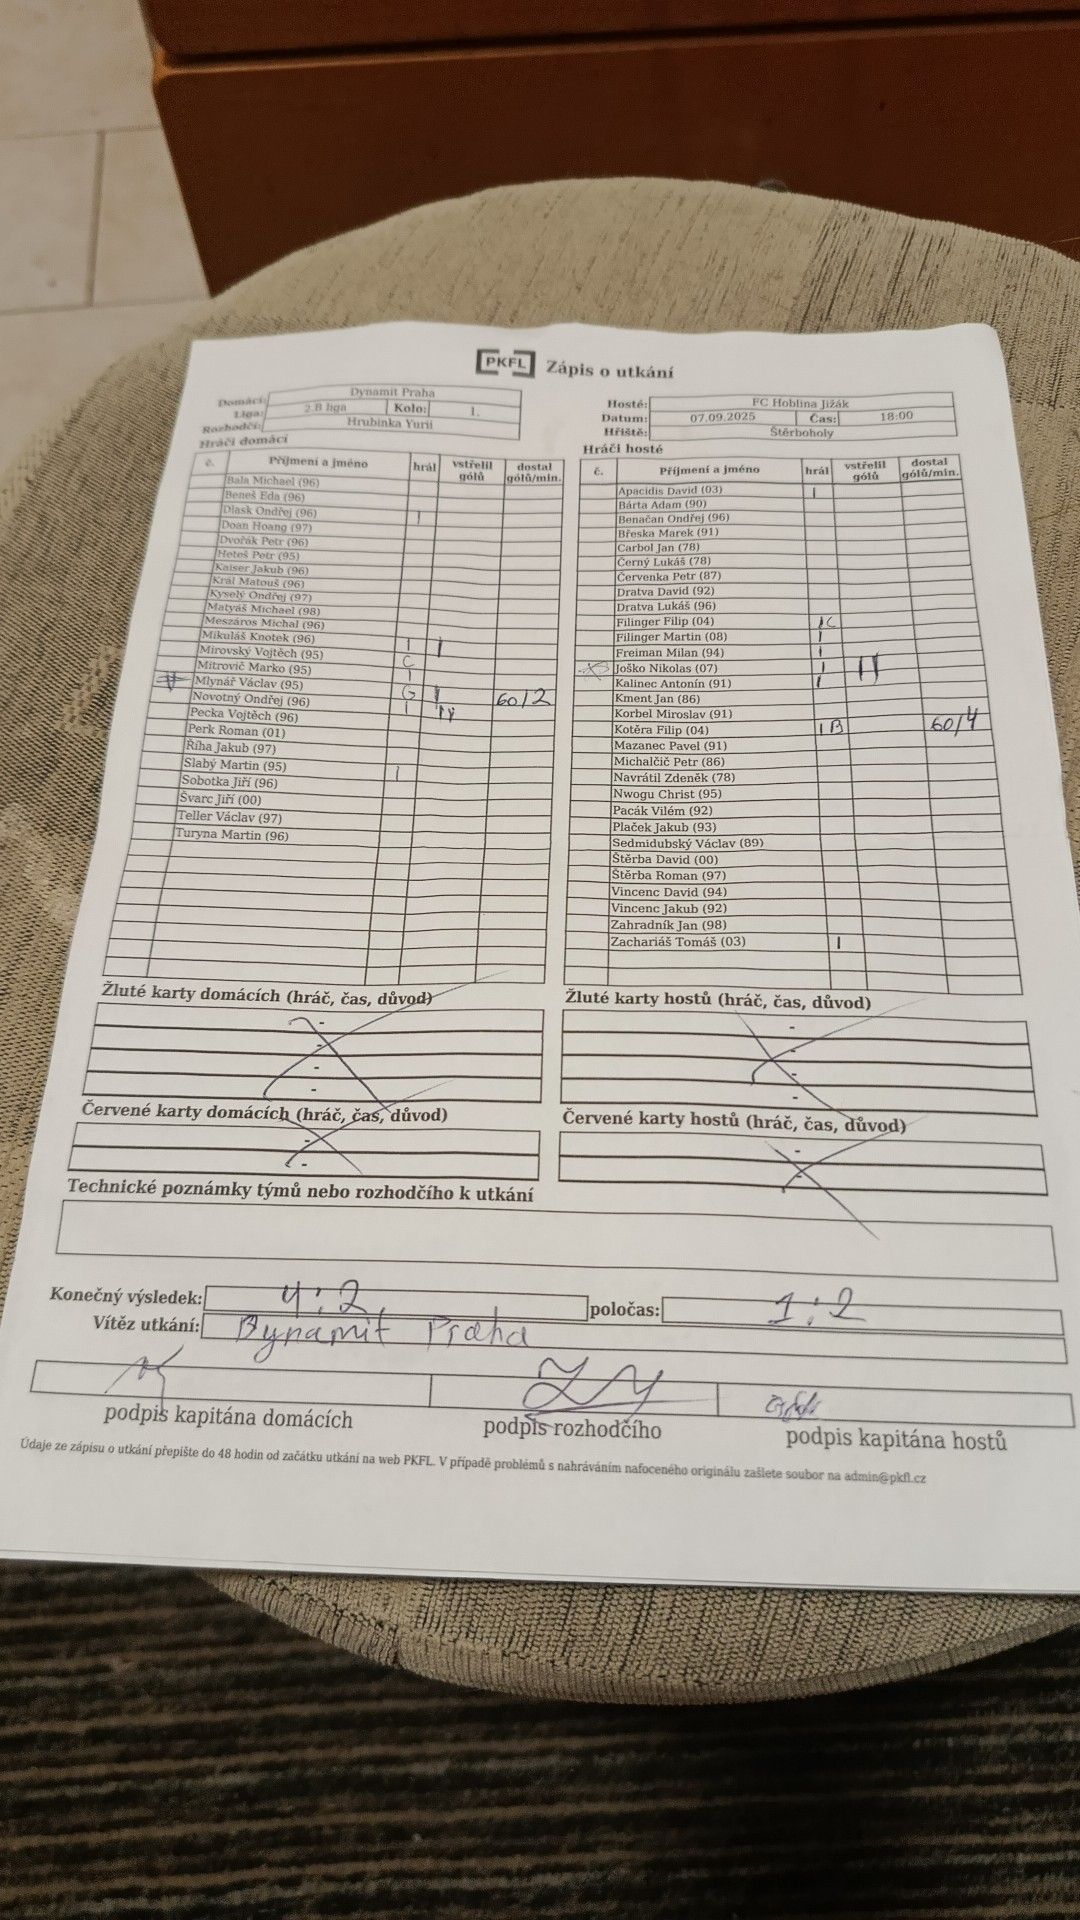 PKFL Zápis o utkání
Domácí: Dynamit Praha
Liga: 2.B liga Kolo: 1.
Rozhodčí: Hrubinka Yurii
Hosté: FC Hoblina Jižák
Datum: 07.09.2025 Čas: 18:00
Hřiště: Štěrboholy
Hráči domácí
č. Příjmení a jméno hrál vstřelil gólů dostal gólů/min.
Bala Michael (96)
Beneš Eda (96)
Dlask Ondřej (96) I
Doan Hoang (97)
Dvořák Petr (96)
Heteš Petr (95)
Kaiser Jakub (96)
Král Matouš (96)
Kyselý Ondřej (97)
Matyáš Michael (98)
Meszáros Michal (96)
Mikuláš Knotek (96)
Mirovský Vojtěch (95) I I
Mitrovič Marko (95) C
Mlynář Václav (95) I
Novotný Ondřej (96) G I 60/2
Pecka Vojtěch (96) I
Perk Roman (01)
Říha Jakub (97)
Slabý Martin (95)
Sobotka Jiří (96) I
Švarc Jiří (00)
Teller Václav (97)
Turyna Martin (96)
Hráči hosté
č. Příjmení a jméno hrál vstřelil gólů dostal gólů/min.
Apacidis David (03) I
Bárta Adam (90)
Benačan Ondřej (96)
Břeska Marek (91)
Carbol Jan (78)
Černý Lukáš (78)
Červenka Petr (87)
Dratva David (92)
Dratva Lukáš (96)
Filinger Filip (04) I C
Filinger Martin (08) I
Freiman Milan (94) I
Joško Nikolas (07) I II
Kalinec Antonín (91) I
Kment Jan (86)
Korbel Miroslav (91)
Kotěra Filip (04) I B 60/4
Mazanec Pavel (91)
Michalčič Petr (86)
Navrátil Zdeněk (78)
Nwogu Christ (95)
Pacák Vilém (92)
Plaček Jakub (93)
Sedmidubský Václav (89)
Štěrba David (00)
Štěrba Roman (97)
Vincenc David (94)
Vincenc Jakub (92)
Zahradník Jan (98)
Zachariáš Tomáš (03) I
Žluté karty domácích (hráč, čas, důvod)
-
-
-
-
Žluté karty hostů (hráč, čas, důvod)
-
-
-
-
Červené karty domácích (hráč, čas, důvod)
-
-
Červené karty hostů (hráč, čas, důvod)
-
-
Technické poznámky týmů nebo rozhodčího k utkání
Konečný výsledek: 4:2 poločas: 1:2
Vítěz utkání: Dynamit Praha
podpis kapitána domácích podpis rozhodčího podpis kapitána hostů
Údaje ze zápisu o utkání přepište do 48 hodin od začátku utkání na web PKFL. V případě problémů s nahráváním nafoceného originálu zašlete soubor na admin@pkfl.cz